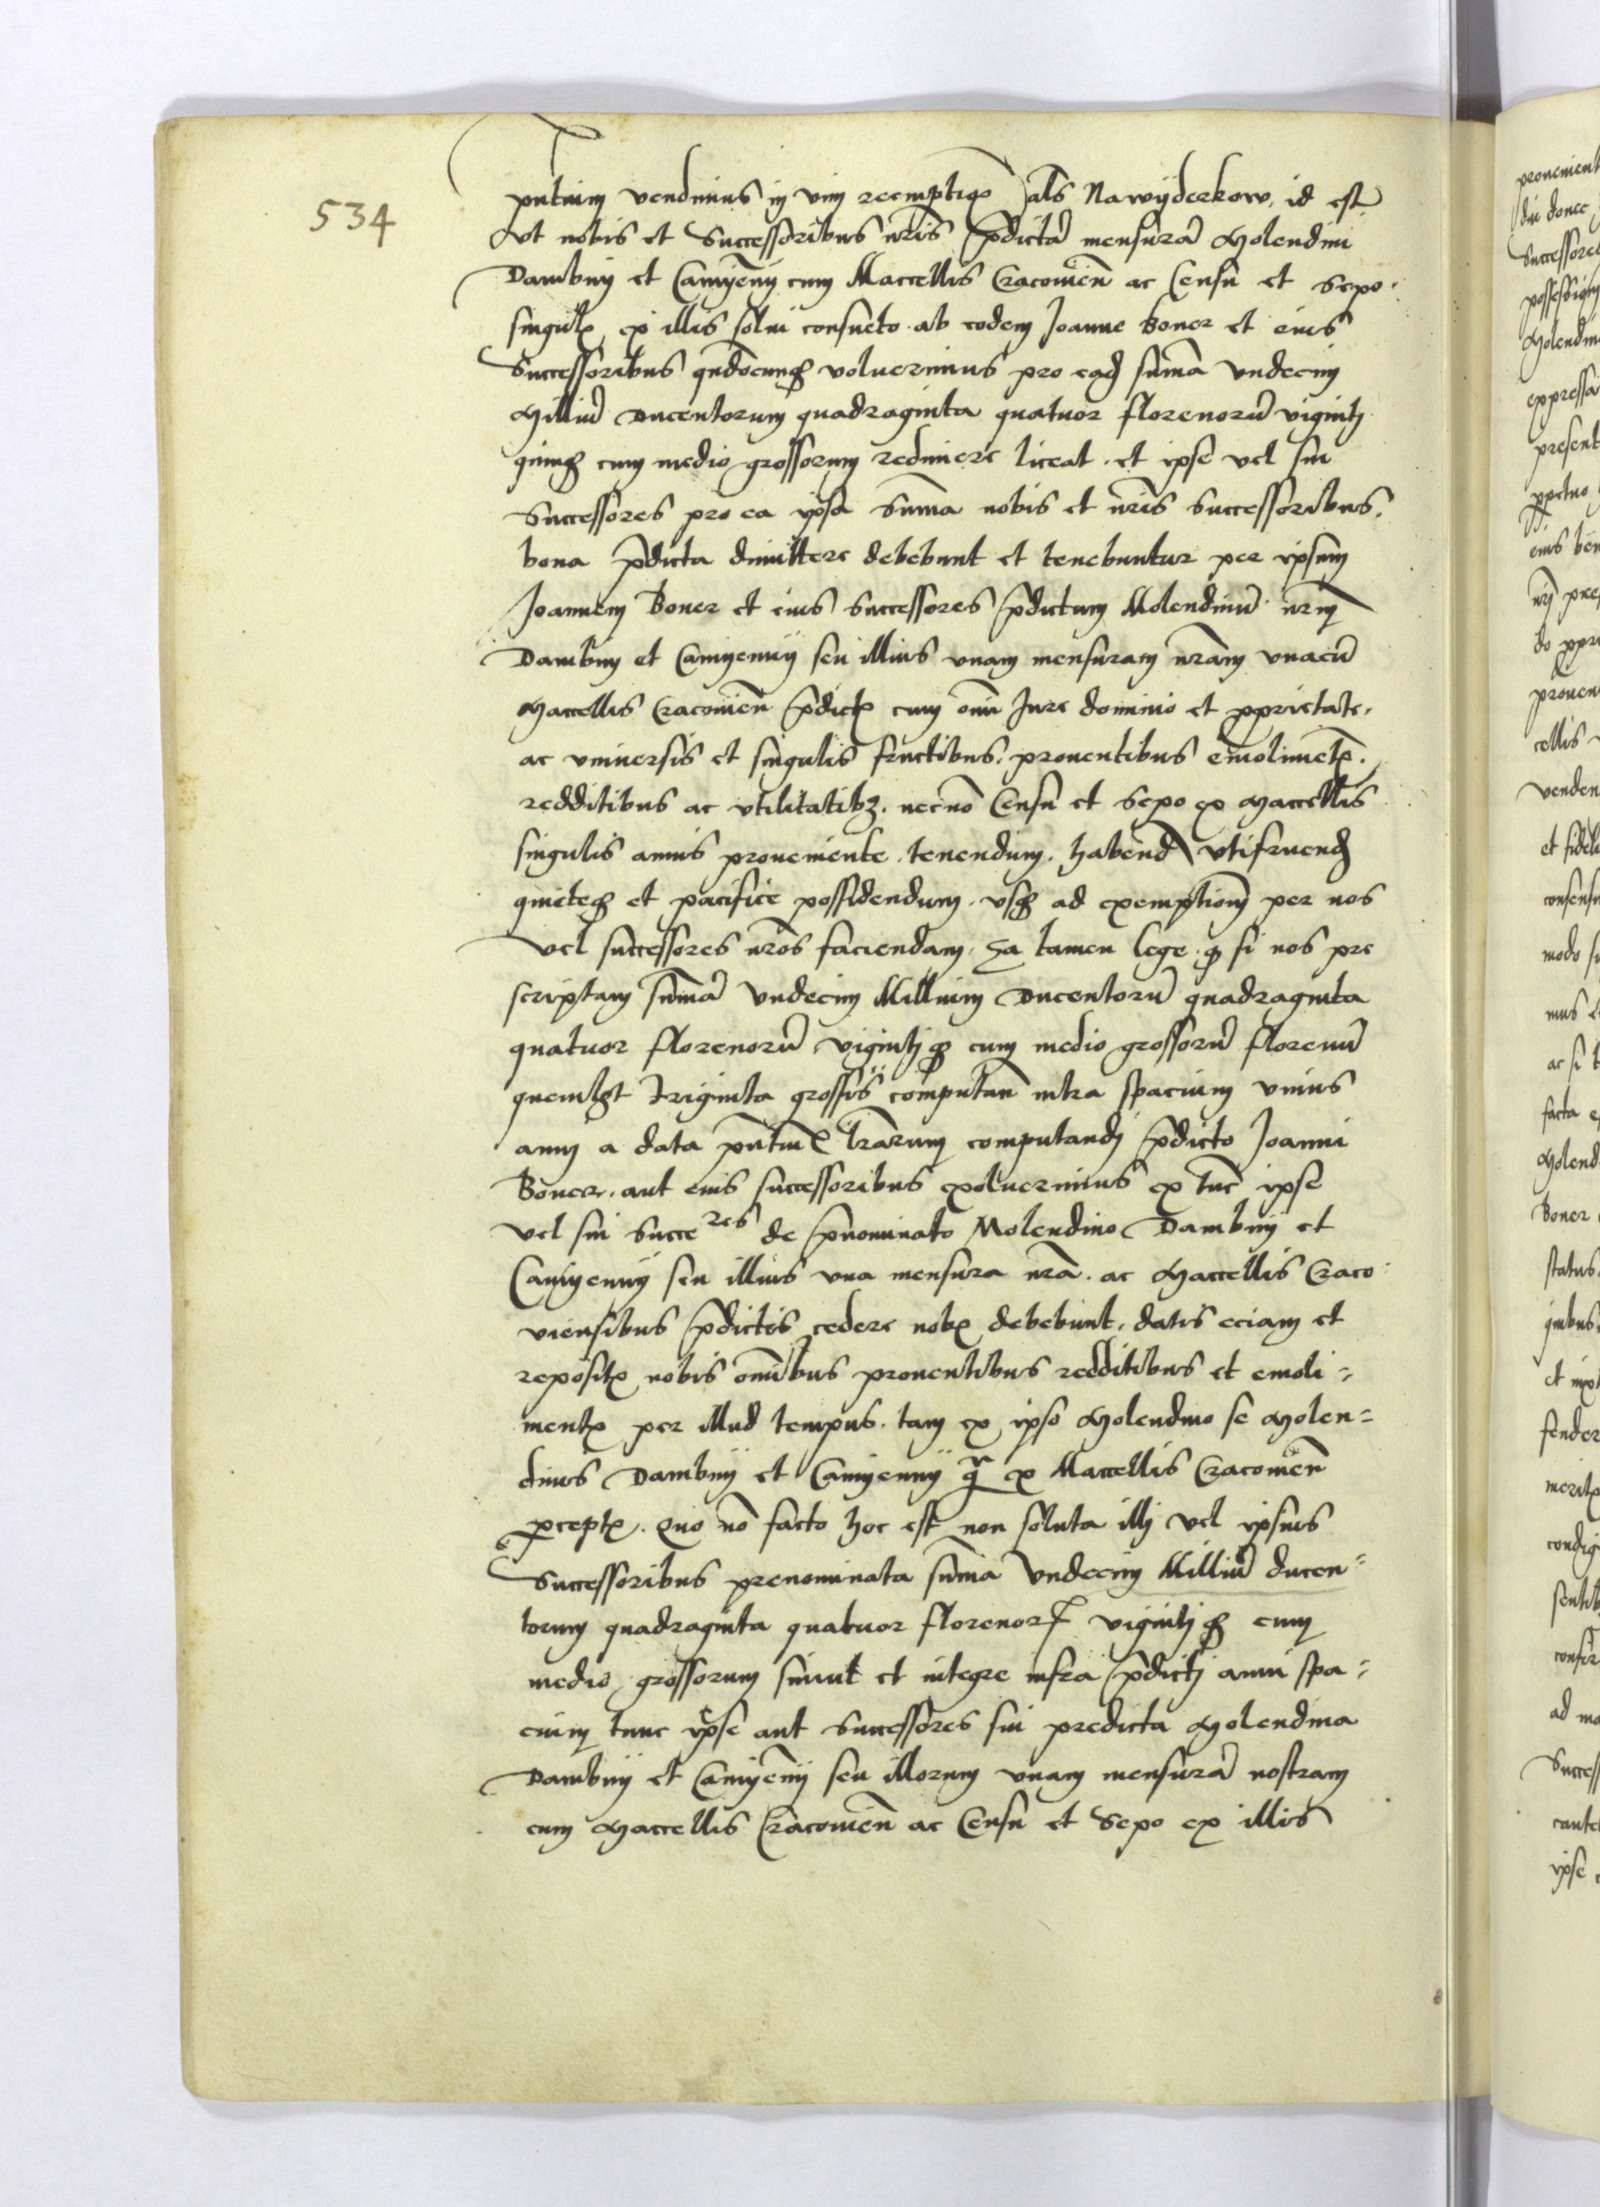 534
pntium vendimus in vim reemptio͞ als Nawyderkow, id est
Vt nobis et Successoribus nr̃is p̃dictã mensurã Molendini
Dambny et Camyeñy cum Maccellis Cracovieñ ac Censu et sepo
singul͞ ex illis solui consueto ab eodem Joanne Boner et eius
Successoribus qn̄docunq3 voluerimus pro eadem sum̃a vndecim
Milliũ Ducentorum quadraginta quatuor florenorũ viginti
quinq3 cum medio grossorum redimere liceat. et ipse vel sui
Successores pro ea ipsa sum̃a nobis et nr̃is successoribus,
bona p̃dicta dimittere debebunt et tenebuntur per ipsum
Joannem Boner et eius successores p̃dictum Molendinũ nr̃m
Dambny et Camyenny seu illius vnam mensuram nr̃am vnacũ
Maccellis Cracovieñ p̃dict͞ cum om̃i Jure dominio et pprietate,
ac vniuersis et singulis fructibus, prouentibus emolimẽt͞.
redditibus ac vtilitatib3. necnõ Censu et sepo ex Maccellis
singulis annis proueniente. tenendum. habend͞ vtifruend͞
quieteq3 et pacifice possidendum. vsq3 ad exemptionẽ per nos
vel successores nr̃os faciendam. Ea tamen lege. q3 si nos pre
scriptam sum̃ã vndecim Millium Ducentorũ quadraginta
quatuor florenorũ viginti q3 cum medio grossorũ florenũ
quemlib3t triginta grossis computañ intra spacium vnius
anni a data pñtiu͞ lr̃arum computandi p̃dicto Joanni
Boner. aut eius successoribus exoluerimus ex tũc ipse
vel sui succe res de p̃nominato Molendino Dambny et
Camyenny seu illius vna mensura nr̃a. ac Maccellis Craco
uiensibus p̃dictis cedere nob͞ debebunt. datis eciam et
reposit͞ nobis om̃ibus prouentibus redditibus et emoli=
ment͞ per illud tempus. tam ex ipso Molendino se Molen=
dinis Dambny et Camyenny q͞ ex Maccellis Cracovieñ
p̱cept͞. Quo nõ facto hoc est non soluta illi vel ipsius
Successoribus prenominata sum̃a vndecim Milliũ ducen=
torum quadraginta quatuor florenor͞ viginti q3 cum
medio grossorum simul et integre infra p̃dicti anni spa=
cium tunc ipse aut Successores sui predicta Molendina
Dambny et Camyẽny seu illorum vnam mensurã nostram
cum Maccellis Cracovieñ ac Censu et Sepo ex illis